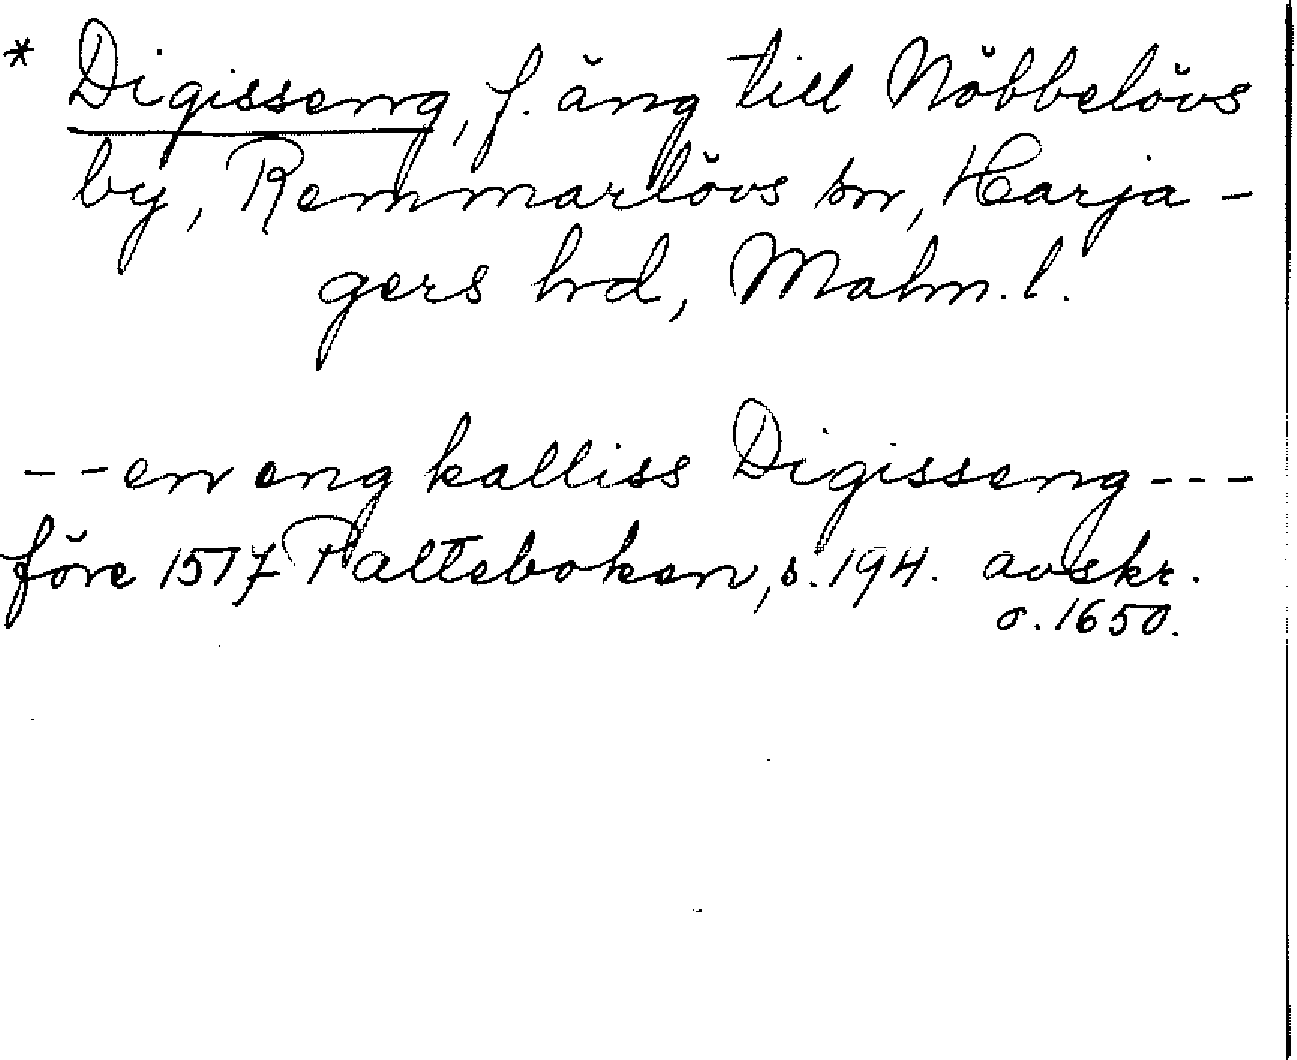 * Digisseng, f. äng till Nöbbelövs
by, Remmarlövs sn, Harja-
gers hd, Malm. l.
--en eng kalliss Digisseng---
före 1517 Palteboken, s. 194. avskr.
o. 1650.